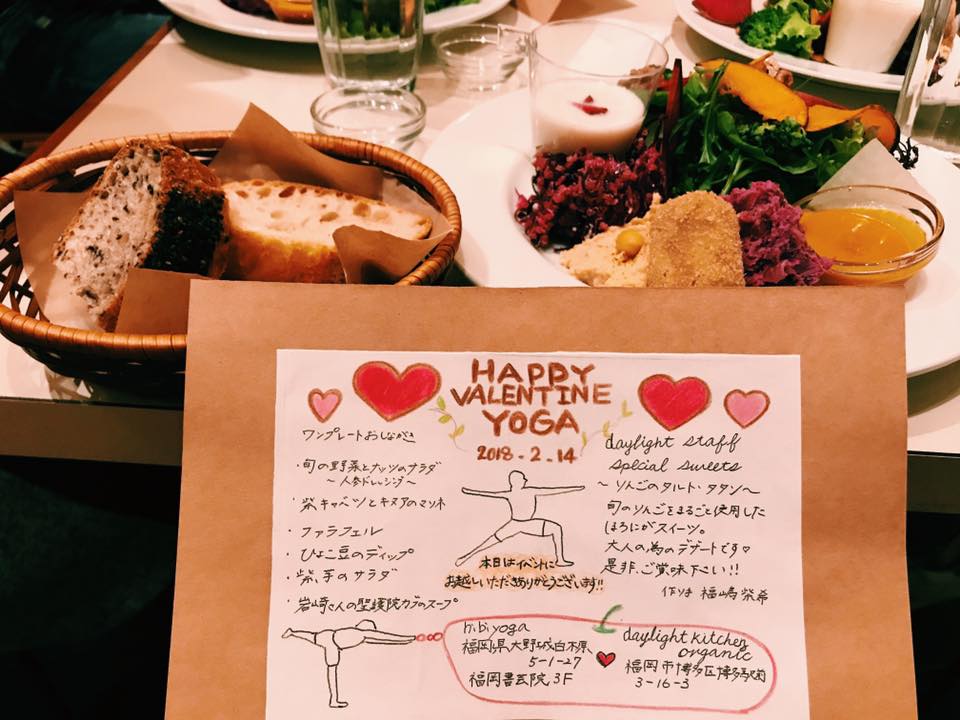 HAPPY
VALENTINE
YOGA
2018.2.14
ワンプレートおしながき
・旬の野菜とナッツのサラダ
～人参ドレッシング～
・紫キャベツとキヌアのマリネ
・ファラフェル
・ひよこ豆のディップ
・紫芋のサラダ
・岩崎さんの聖護院カブのスープ
daylight staff
special sweets
～りんごのタルト・タタン～
旬のりんごをまるごと使用した
ほろにがスイーツ。
大人の為のデザートです♡
是非、ご賞味下さい!!
作りは 福嶋 紫希
本日はイベントに
お越しいただきありがとうございます!!
hibiyoga
福岡県大野城白木原
5-1-27
福岡書芸院 3F
daylight kitchen
organic
福岡市博多区博多駅前
3-16-3